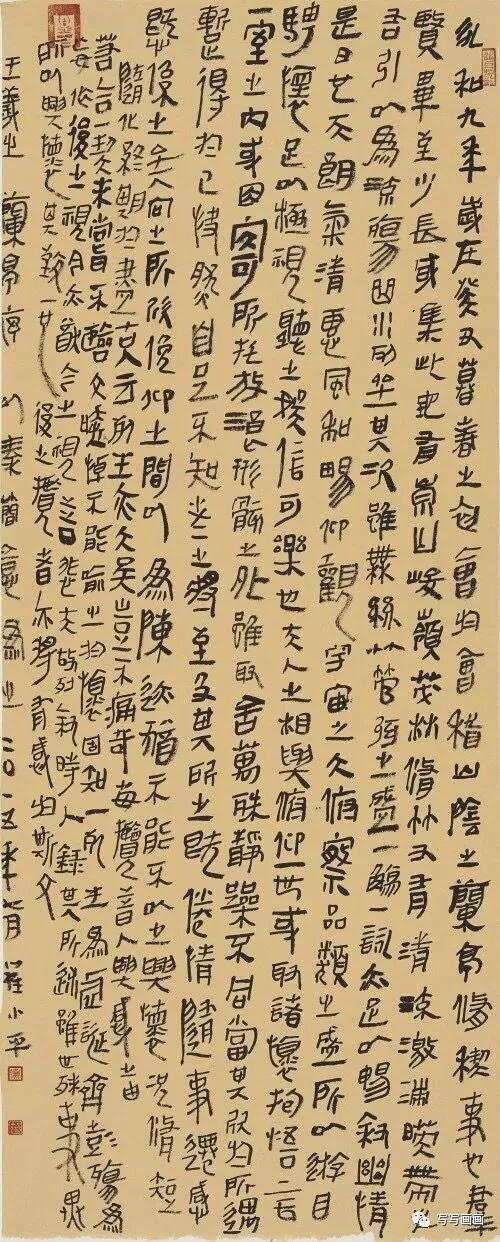 永和九年歲在癸丑暮春之初會於會稽山陰之蘭亭脩禊事也羣
賢畢至少長咸集此地有崇山峻嶺茂林脩竹又有清流激湍暎帶左
右引以為流觴曲水列坐其次雖無絲竹管弦之盛一觴一詠亦足以暢敘幽情
是日也天朗氣清惠風和暢仰觀宇宙之大俯察品類之盛所以遊目
騁懷足以極視聽之娛信可樂也夫人之相與俯仰一世或取諸懷抱悟言
一室之內或因寄所託放浪形骸之外雖取舍萬殊靜躁不同當其欣於所遇
暫得於己快然自足不知老之將至及其所之既倦情隨事遷感
慨係之矣向之所欣俛仰之間以為陳迹猶不能不以之興懷況脩短
隨化終期於盡古人云死生亦大矣豈不痛哉每攬昔人興感之由
若合一契未嘗不臨文嗟悼不能喻之於懷固知一死生為虛誕齊彭殤為
妄作後之視今亦猶今之視昔悲夫故列敘時人錄其所述雖世殊事異
所以興懷其致一也後之攬者亦將有感於斯文
王羲之蘭亭序以秦簡意為之二〇一五年月羅小平
写写画画